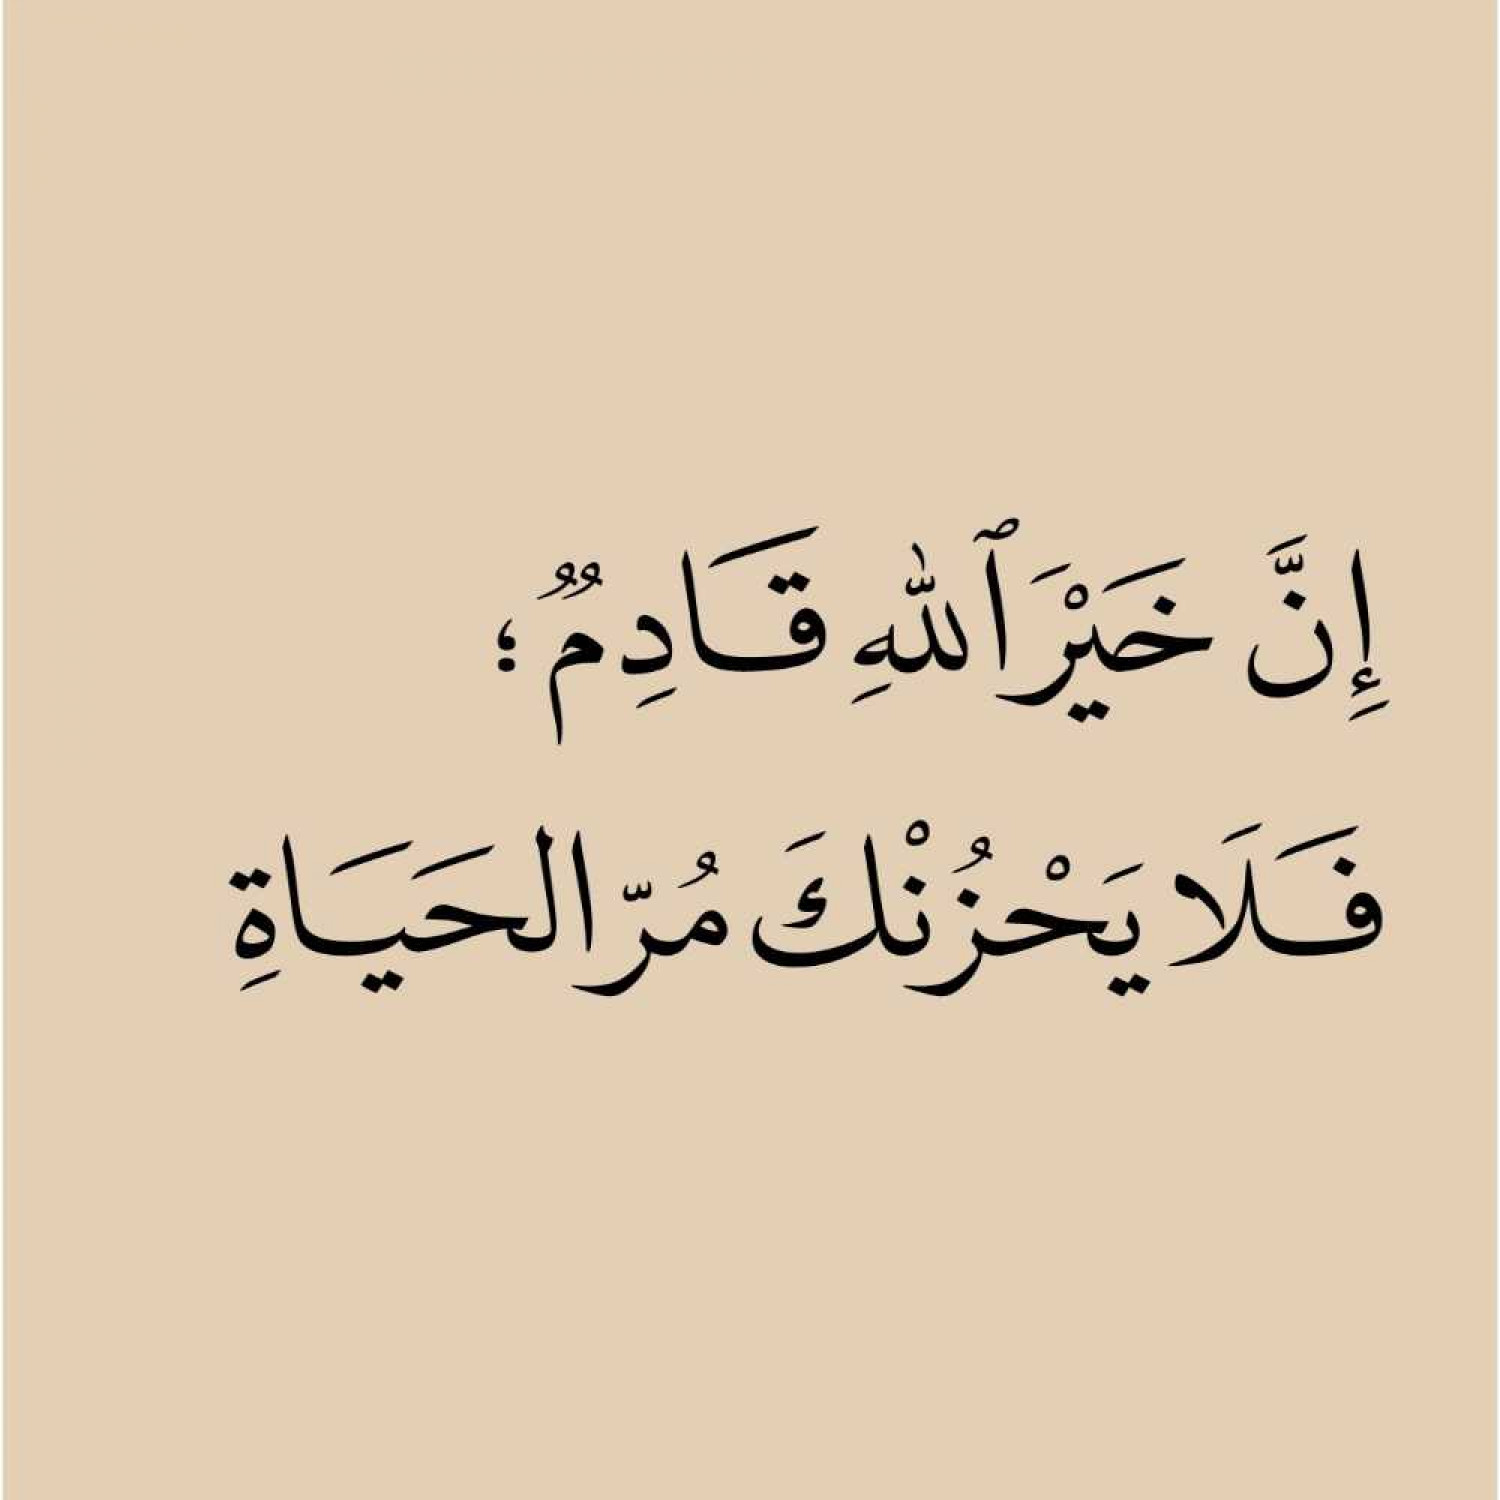 إِنَّ خَيْرَ ٱللّٰهِ قَادِمٌ ؛
فَلَا يَحْزُنْكَ مُرّ الحَيَاةِ